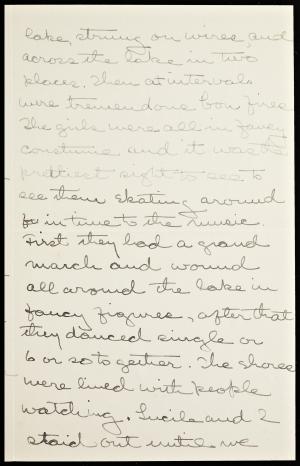 lake, strung on wires, and
across the lake in two
places. Then at intervals
were tremendous bon fires
The girls were all in fancy
costume and it was the
prettiest sight to see to
see them skating around
in time to the music.
First they had a grand
march and wound
all around the lake in
fancy figures, after that
they danced single or
6 or so to gether. The shores
were lined with people
watching. Lucile and I
staid out until we